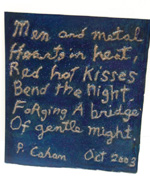 Men and metal
Hearts in heat,
Red hot Kisses
Bend the Night,
Forging A bridge
Of gentle might.
P. Cohen Oct 2003